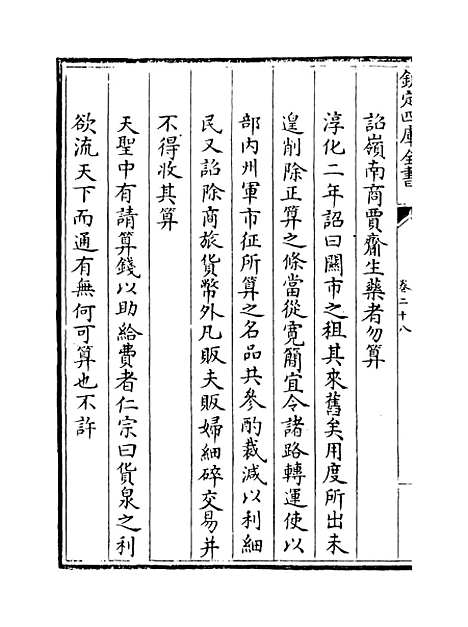 欽定四庫全書
卷二十八
詔嶺南商賈齎生藥者勿算
淳化二年詔曰關市之租其來舊矣用度所出未
遑削除正算之條當從寛簡宜令諸路轉運使以
部内州軍市征所算之名品共參酌裁減以利細
民又詔除商旅貨幣外凡販夫販婦細碎交易并
不得收其算
天聖中有請算錢以助給費者仁宗曰貨泉之利
欲流天下而通有無何可算也不許